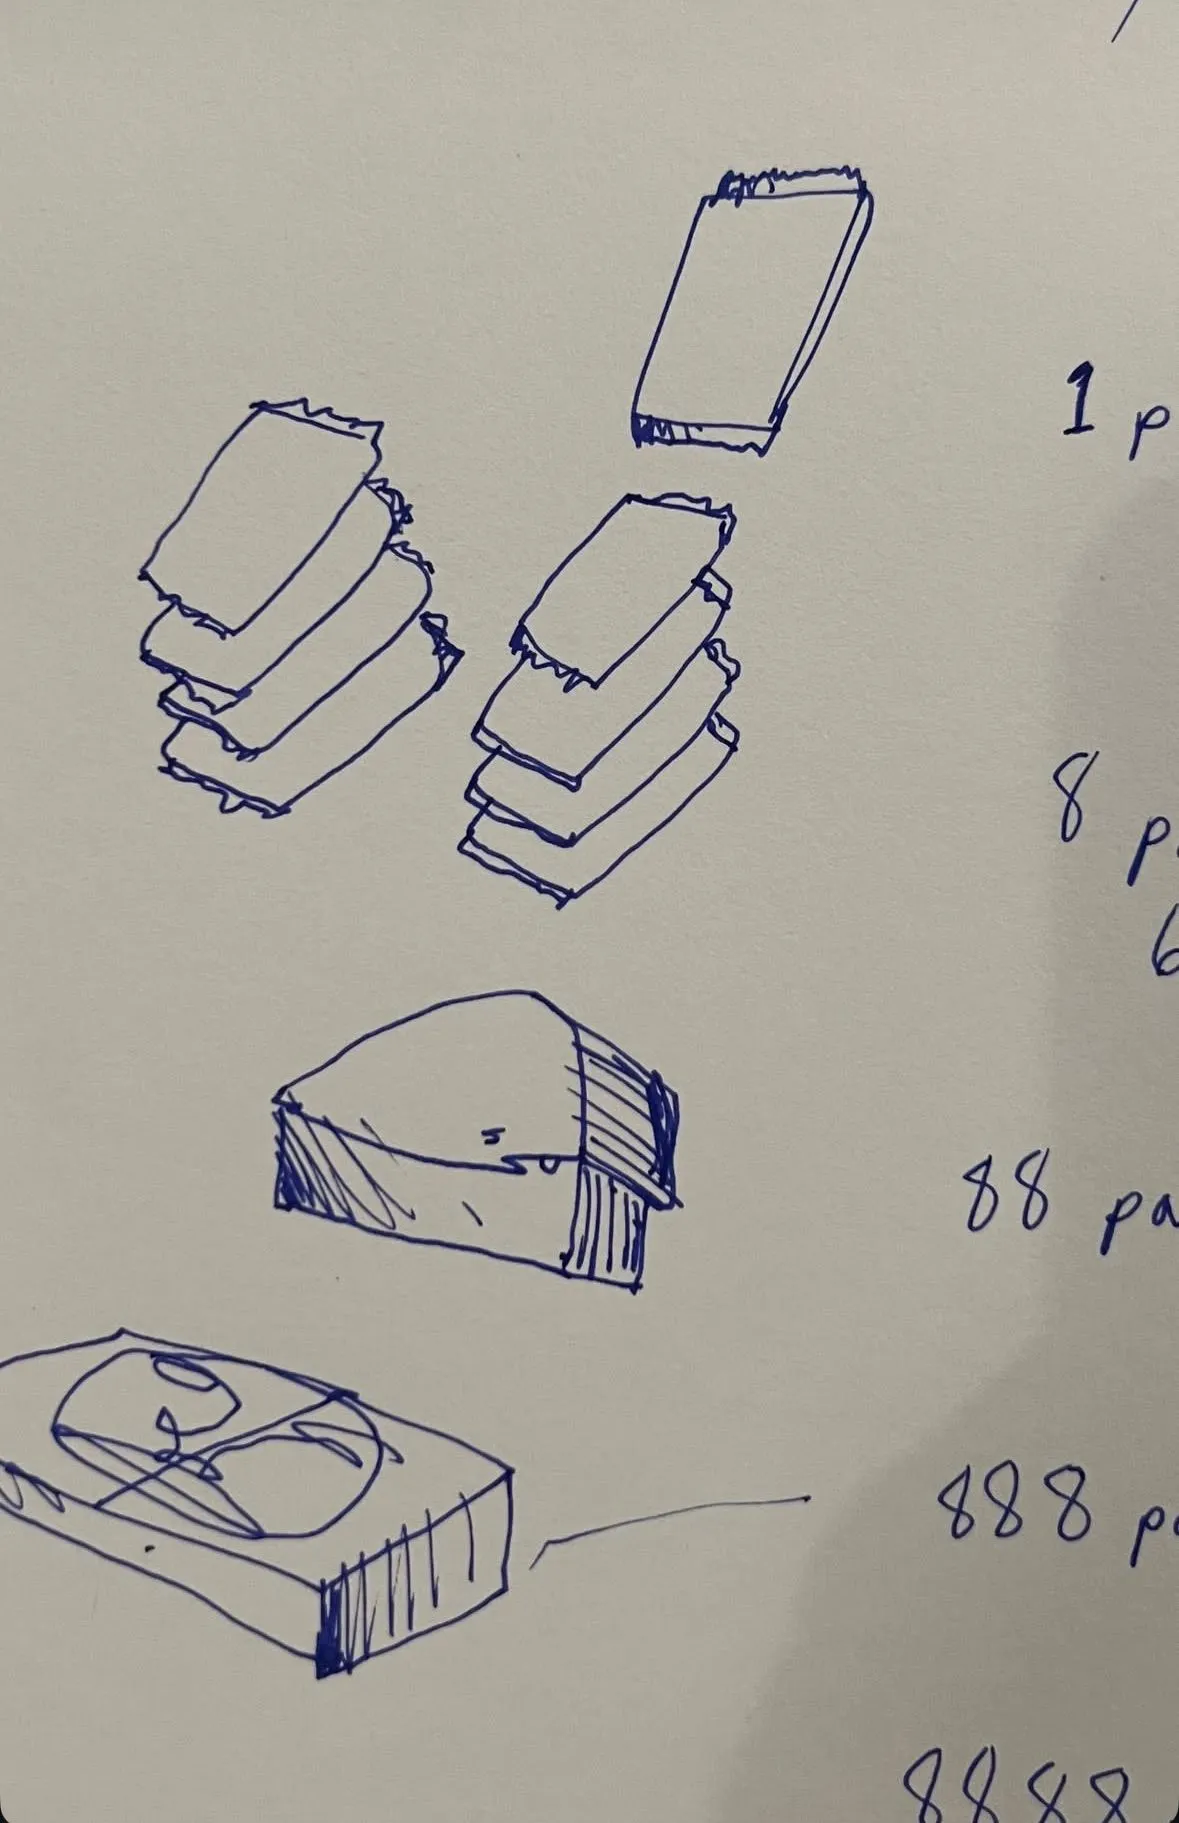 1 p
8 p
6
88 pa
888 p
8888